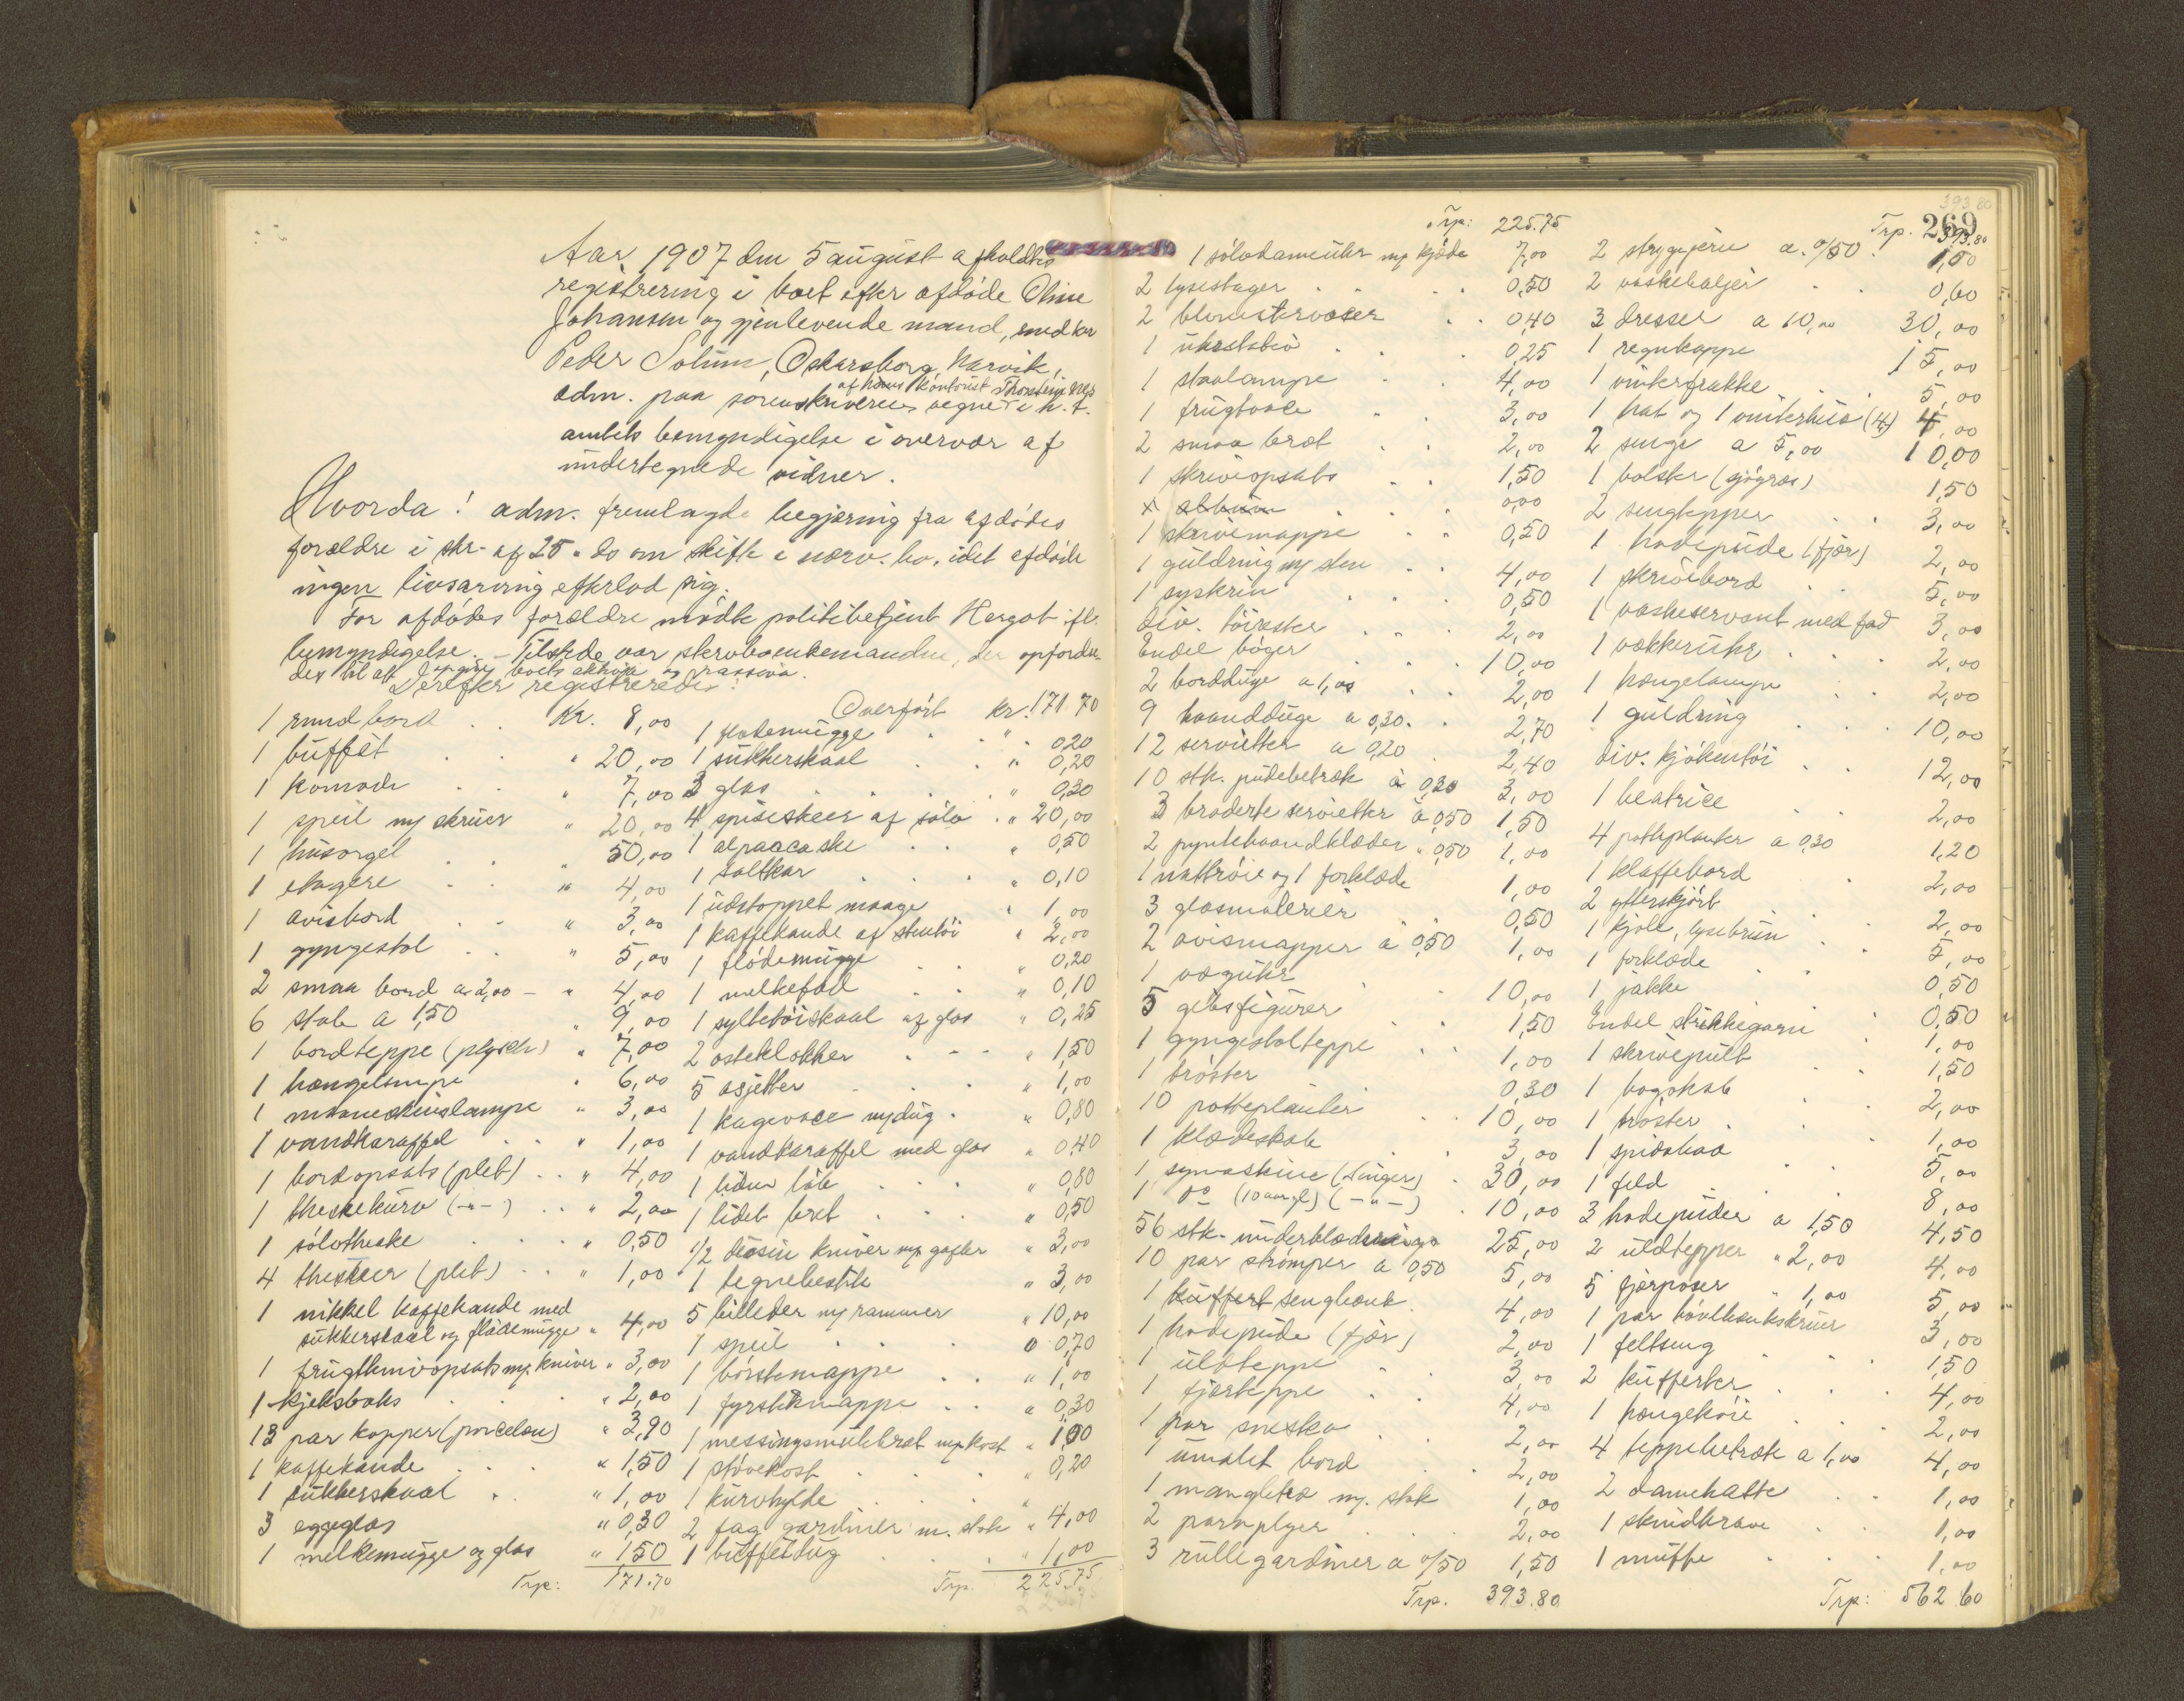 Aar 1907 den 5 august afholdtes
registrering i boet efter afdøde Oline
Johansen og gjenlevende mand, snedker
Peder Solum, Oskarsborg, Narvik,
af hans kontorist Thorstein
adm. paa sorenskriverens vegne i h. t.
ambts bemyndigelse i overvær af
undertegnede vidner.
Hvorda! adm. fremlagde begjæring fra afdødes
forældre i skr. af 25 ds om skifte i nærv. bo, idet afdøde
ingen livsarving efterlod sig.
For afdødes forældre mødte politibetjent Hergot ifl.
bemyndigelse. - Tilstede var skrboenkemanden, der opfordre-
des til at opgive boets aktiva og passiva.
Derefter registreredes:
1 rund bord . . Kr. 8,00
1 buffet . " 20,00
1 komode . . " 7,00
1 speil m/ skruer " 20,00
1 husorgel . . " 50,00
1 etagere . . " 4,00
1 avisbord . . " 3,00
1 gyngestol . . " 5,00
2 smaa bord a 2,00 - " 4,00
6 stole a 1,50 " 9,00
1 bordteppe (plysch) " 7,00
1 hængelampe " 6,00
1 maaneskinslampe " 3,00
1 vandkaraffel . . " 1,00
1 bordopsats (plet) . . " 4,00
1 theskekurv (-"-) . . " 2,00
1 sølvtheske . . " 0,50
4 theskeer (plet) . . " 1,00
1 nikkel kaffekande med
sukkerskaal og flødemugge " 4,00
1 frugtknivopsats m/ kniver " 3,00
1 kjeksboks . . " 2,00
13 par kopper (porcelæn) " 3,90
1 kaffekande . . " 1,50
1 sukkerskaal . . " 1,00
3 eggeglas " 0,30
1 melkemugge og glas " 1,50
Trp: 171.70
Overført kr. 171.70
1 flødemugge . . " 0,20
1 sukkerskaal . . " 0,20
3 glas . . . " 0,30
4 spiseskeer af sølv . " 20,00
1 alpaccaske . . " 0,50
1 saltkar . . . " 0,10
1 udstoppet maage " 1,00
1 kaffekande af stentøi " 2,00
1 flødemugge . . " 0,20
1 melkefad . . " 0,10
1 syltetøiskaal af glas " 0,25
2 osteklokker . . . " 1,50
5 asjetter . . . " 1,00
1 kagevase m/dug . " 0,80
1 vandkaraffel med glas " 0,40
1 liden løb . . . " 0,80
1 lidet bret . . . " 0,50
1/2 dusin kniver m/ gafler " 3,00
1 tegnebestik " 3,00
5 billeder m/ rammer " 10,00
1 speil . . . " 0,70
1 børstemappe . . " 1,00
1 fyrstikmappe . . " 0,30
1 messingsmulebret m/kost " 1,00
1 støvekost . . . " 0,20
1 kurvhylde . . .
2 fag gardiner m. stok " 4,00
1 buffetdug . . . " 1,00
Trp. 225.75
Trp: 225.75
1 sølvdameuhr m/ kjæde 7,00
2 lysestager . . . 0,50
2 blomstervaser . . 0,40
1 uhrstativ . . . 0,25
1 staalampe . . 4,00
1 frugtvase . . 3,00
2 smaa bret . . 2,00
1 skriveopsats . . 1,50
x album . . . 0,00
1 skrivemappe . . 0,50
1 guldring m/ sten . . 4,00
1 syskrin . . . 0,50
div. tøirester . . . 2,00
Endel bøger . . . 10,00
2 bordduge a 1,00 . . 2,00
9 haandduge a 0,30 . . 2,70
12 servietter a 0,20 . 2,40
10 stk. pudebetræk à 0,30 3,00
3 broderte servietter à 0,50 1,50
2 pyntehaandklæder " 0,50 1,00
1 nattrøie og 1 forklæde 1,00
3 glasmalerier . . 0,50
2 avismapper à 0,50 1,00
1 væguhr . . 10,00
5 gibsfigurer . . 1,50
1 gyngestolteppe . . 1,00
1 trøster 0,30
10 potteplanter . . 10,00
1 klædeskab . . 3,00
1 symaskine (Singer) . 30,00
1 do (10 aar gl.) (-"-) . 10,00
56 stk. underklæder 25,00
10 par strømper a 0,50 5,00
1 kuffert sengbænk . 4,00
1 hodepude (fjær) 2,00
1 uldteppe . . 3,00
1 fjærteppe . . 4,00
1 par snesko . . 2,00
1 umalet bord . . 2,00
1 mangletræ m/. stok 1,00
2 paraplyer . . . 2,00
3 rullegardiner a 0/50 1,50
Trp. 393.80
393.80
269
Trp. 393.80
2 strygejern a. 0/50 . 1,00
2 vaskebaljer . . 0,60
3 dresser a 10,00 30,00
1 regnkappe 15,00
1 vinterfrakke . . 5,00
1 hat og 1 vinterhue (4,-) 4,00
2 senge a 5,00 10,00
1 bolster (sjøgræs) 1,50
2 sengtepper . . 3,00
1 hodepude (fjær) 2,00
1 skrivebord . . 5,00
1 vaskeservant med fad 3,00
1 vækkeruhr . . . 2,00
1 hængelampe . . 2,00
1 guldring . . . 10,00
div. kjøkentøi . . 12,00
1 beatrice . . 2,00
4 potteplanter a 0,30 1,20
1 klaffebord . 2,00
2 ytterskjørt . . 2,00
1 kjole, lysebrun . . 5,00
1 forklæde . . 0,50
1 jakke . 0,50
Endel strikkegarn . 1,00
1 skrivepult . . 1,50
1 bogskab . . 2,00
1 trøster . . . 1,00
1 spidskaa . . 5,00
1 feld . . . . 8,00
3 hodepuder a 1,50 4,50
2 uldtepper " 2,00 4,00
5 fjærposer " 1,00 5,00
1 par høvlbænkskruer 3,00
1 feltseng . . . 1,50
2 kufferter . . . 4,00
1 hængekøie . . . 2,00
4 teppebetræk a 1,00 4,00
2 damehatte . . 1,00
1 skindkrave . . 1,00
1 muffe . . . 1,00
Trp: 562.60